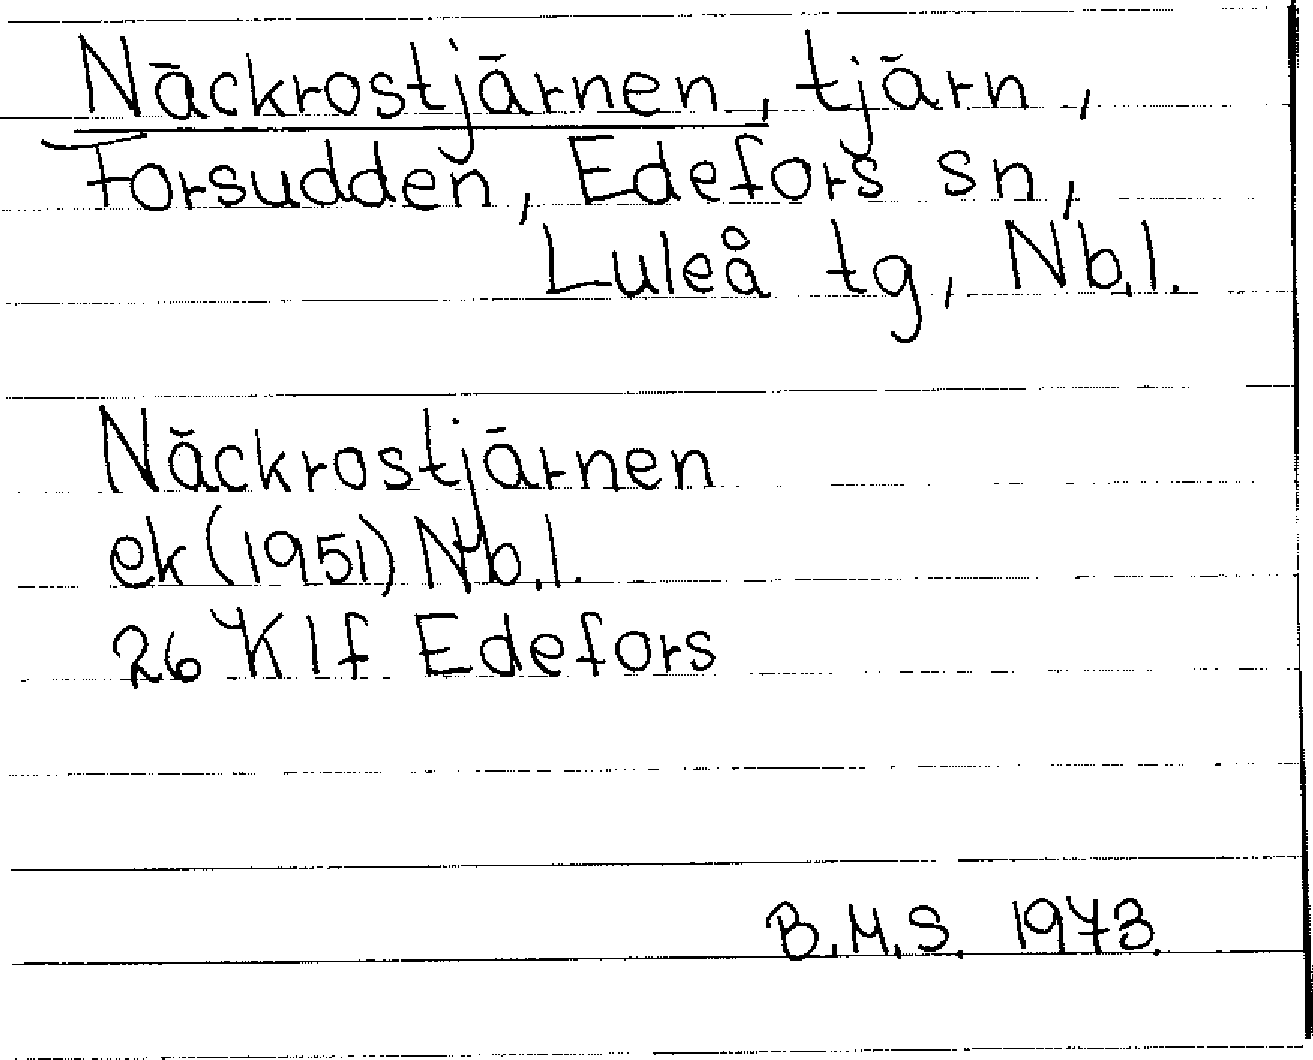 Näckrostjärnen, tjärn,
Forsudden, Edefors sn,
Luleå tg, Nb.l.
Näckrostjärnen
ek (1951) Nb.l.
26 K l f Edefors
B.M.S. 1973.